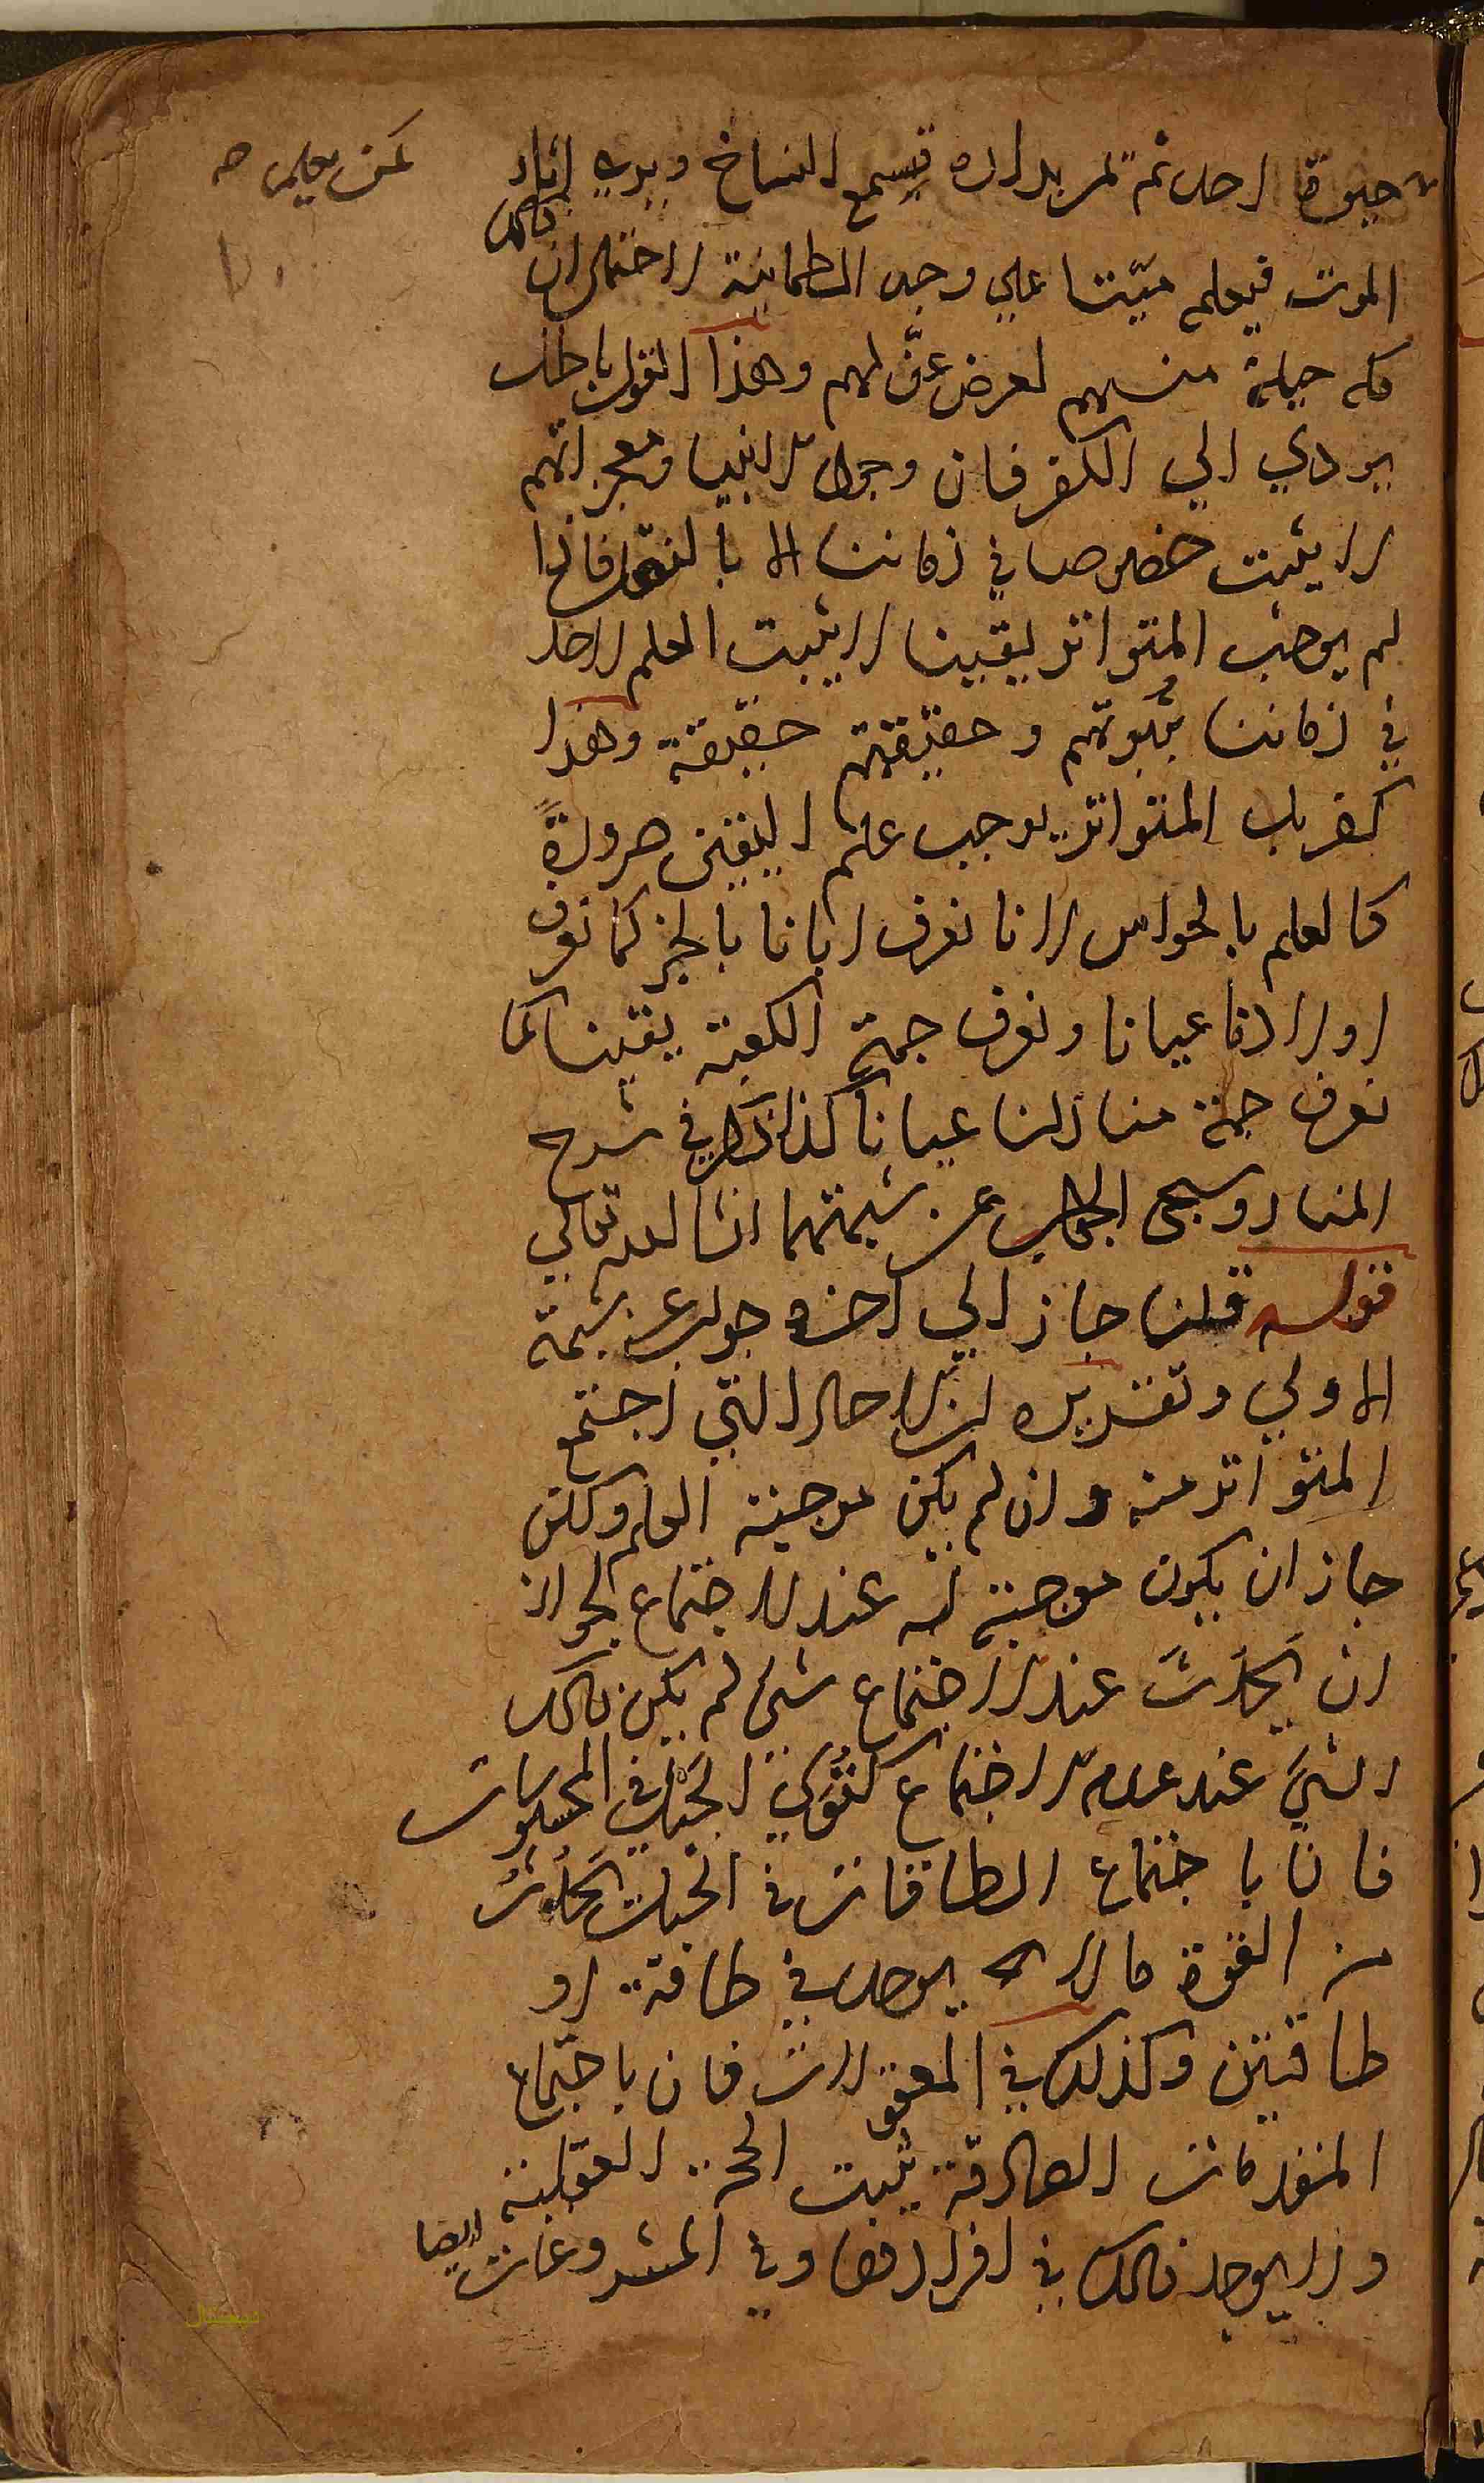 كمن يعلم
حيوة احد ثم تمر بداره فيسمع النياح ويرى اثار
الموت فيعلم ميتا علي وجه الطمانية لاحتمال ان ذالك
كله حيلة منهم لعرض عنّ لهم وهذا القول باطل
يودي الي الكفر فان وجود الانبيا ومعجزاتهم
لا يثبت خصوصا في زماننا الا بالنقل فاذا
لم يوجب المتواتر يقينا لا يثبت العلم لاحد
في زماننا بنبوتهم وحقيقتهم حقيقة وهذا
كفر بل المتواتر يوجب علم اليقين ضرورةً
كالعلم بالحواس لانا نعرف ابانا بالخبر كما نعرف
اولادنا عيانا ونعرف جهة الكعبة يقينا كما
نعرف جهة منازلنا عيانا كذا ذكر في شرح
المنار وسيجي الجواب عن شبهتهما انشا لله تعالي
قوله قلنا جاز الي اخره جواب عن شبهة
الاولي وتقريره ان الاحاد التي اجتمع
المتواتر منه وان لم يكن موجبة العلم ولكن
جاز ان يكون موجبة له عند الاجتماع لجواز
ان يحدث عند الاجتماع شئ لم يكن ذالك
الشئ عند عدم الاجتماع كقوي الحبل في المحسوسات
فانا باجتماع الطاقات في الحبل يحدث
من القوة ما لا يوجد في طاقة او
طاقتين وكذلك في المعقولات فان باجتماع
المقدمات الصادقة يثبت الحجة العقلية
ولا يوجد ذالك في افرادها وفي المشروعات ايضا